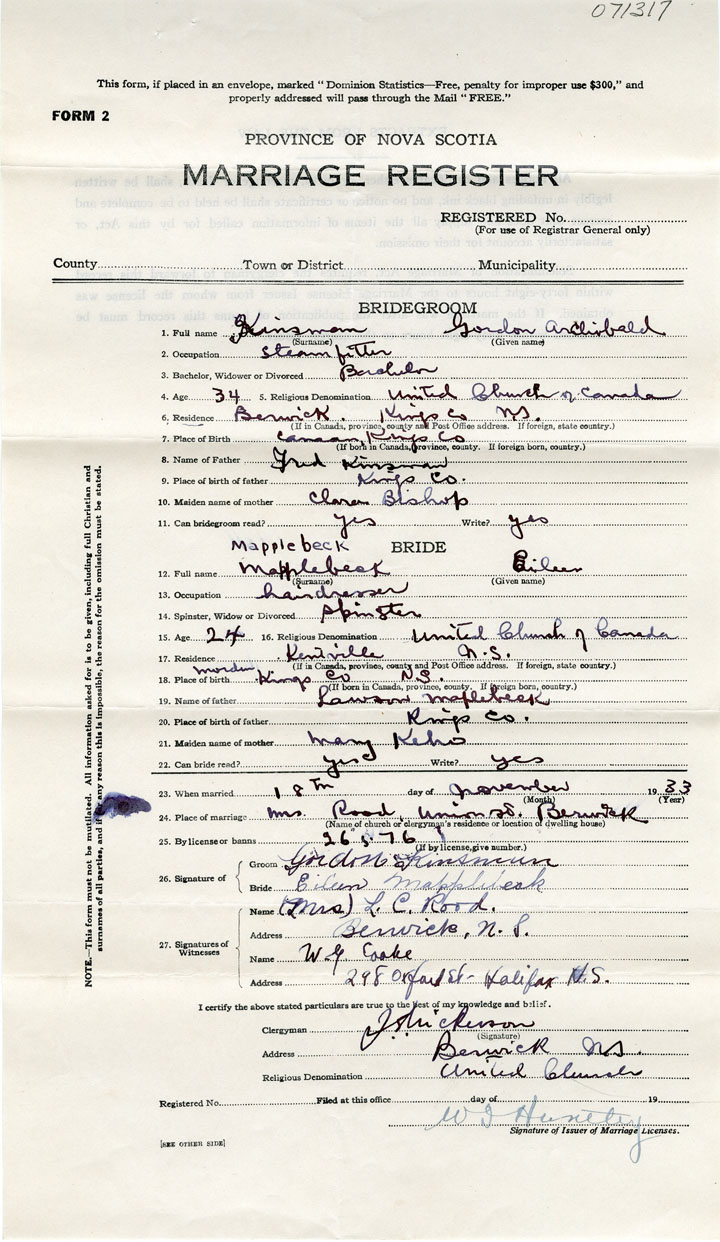 071317
This form, if placed in an envelope, marked "Dominion Statistics—Free, penalty for improper use $300," and
properly addressed will pass through the Mail "FREE."
FORM 2
PROVINCE OF NOVA SCOTIA
MARRIAGE REGISTER
REGISTERED No.
(For use of Registrar General only)
County Town or District Municipality
BRIDEGROOM
1. Full name Kinsman Gordon Archibald
(Surname) (Given name)
2. Occupation Steam fitter
3. Bachelor, Widower or Divorced Bachelor
4. Age 34 5. Religious Denomination United Church of Canada
6. Residence Berwick. Kings Co N.S.
(If in Canada, province, county and Post Office address. If foreign, state country.)
7. Place of Birth Canaan, Kings Co
(If born in Canada, province, county. If foreign born, country.)
8. Name of Father Fred Kinsman
9. Place of birth of father Kings Co.
10. Maiden name of mother Clara Bishop
11. Can bridegroom read? yes Write? yes
Mapplebeck BRIDE
12. Full name Mapplebeck Eileen
(Surname) (Given name)
13. Occupation hairdresser
14. Spinster, Widow or Divorced Spinster
15. Age 24 16. Religious Denomination United Church of Canada
17. Residence Kentville N.S.
(If in Canada, province, county and Post Office address. If foreign, state country.)
18. Place of birth Morden Kings Co N.S.
(If born in Canada, province, county. If foreign born, country.)
19. Name of father Lawson Mapplebeck
20. Place of birth of father Kings Co.
21. Maiden name of mother Mary Keho
22. Can bride read? yes Write? yes
23. When married 18th day of November 1933
(Month) (Year)
24. Place of marriage Mrs. Rood, Union St. Berwick
(Name of church or clergyman's residence or location of dwelling house)
25. By license or banns 26576
(If by license, give number.)
26. Signature of
Groom Gordon Kinsman
Bride Eileen Mapplebeck
27. Signatures of Witnesses
Name (Mrs) L. C. Rood.
Address Berwick, N.S.
Name W G Cooke
Address 298 Oxford St - Halifax N.S.
I certify the above stated particulars are true to the best of my knowledge and belief.
Clergyman
(Signature)
Address Berwick N.S.
Religious Denomination United Church
Registered No. Filed at this office day of 19
Signature of Issuer of Marriage Licenses.
[SEE OTHER SIDE]
NOTE.—This form must not be mutilated. All information asked for is to be given, including full Christian and
surnames of all parties, and if for any reason this is impossible, the reason for the omission must be stated.